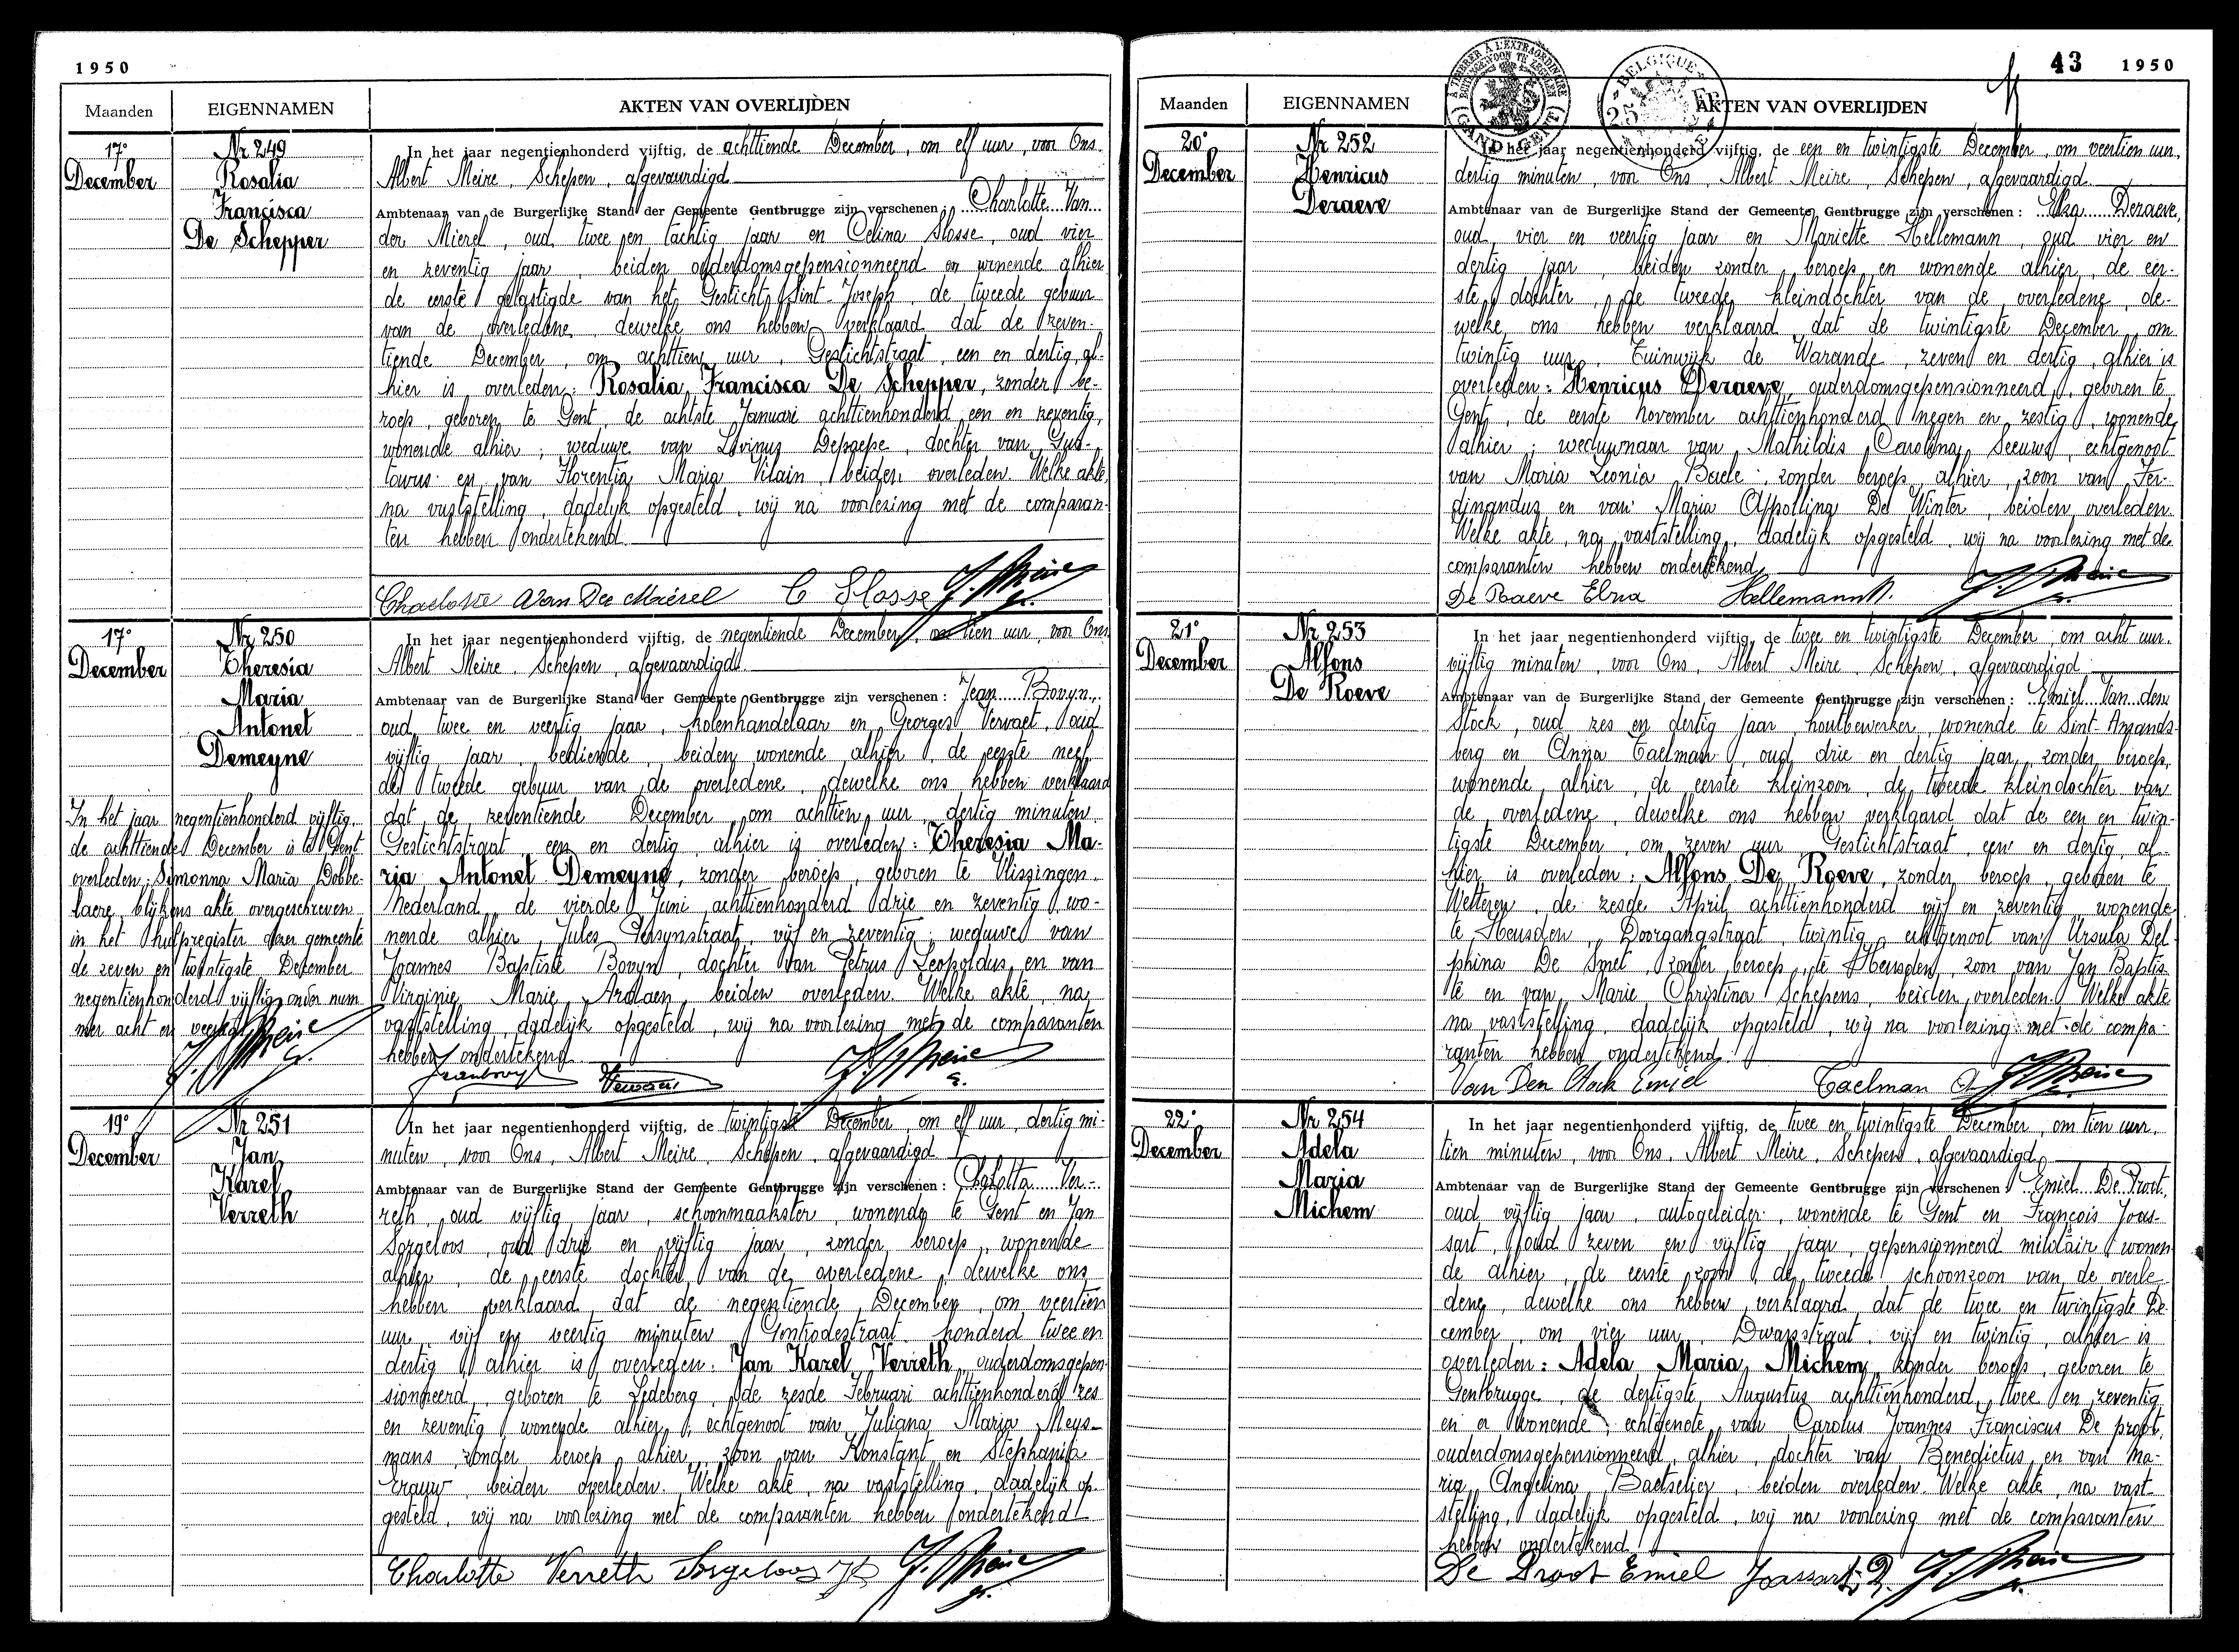 1950
Maanden EIGENNAMEN AKTEN VAN OVERLIJDEN
17° December
Nr 249
Rosalia
Francisca
De Schepper
In het jaar negentienhonderd vijftig, de achttiende December, om elf uur, voor Ons
Albert Meire, Schepen, afgevaardigd
Ambtenaar van de Burgerlijke Stand der Gemeente Gentbrugge zijn verschenen: Charlotte Van
der Mierel, oud twee en tachtig jaar en Celina Slosse, oud vier
en zeventig jaar, beiden ouderdomsgepensionneerd en wonende alhier
de eerste gelastigde van het Gesticht Sint-Joseph, de tweede gebuur
van de overledene, dewelke ons hebben verklaard dat de zeven-
tiende December, om achttien uur, Gestichtstraat, een en dertig, al-
hier is overleden: Rosalia Francisca De Schepper, zonder be-
roep, geboren te Gent, de achtste Januari achttienhonderd een en zeventig,
wonende alhier; weduwe van Livinus Depaepe, dochter van Gus-
tavus en van Florentia Maria Vilain, beiden overleden. Welke akte,
na vaststelling, dadelijk opgesteld, wij na voorlezing met de comparan-
ten hebben ondertekend.
Charlotte Van Der Mierel C Slosse
17° December
Nr 250
Theresia
Maria
Antonet
Demeyne
In het jaar negentienhonderd vijftig, de negentiende December, om tien uur, voor Ons
Albert Meire, Schepen, afgevaardigd
Ambtenaar van de Burgerlijke Stand der Gemeente Gentbrugge zijn verschenen: Jean Bovyn,
oud twee en veertig jaar, kolenhandelaar en Georges Vervaet, oud
vijftig jaar, bediende, beiden wonende alhier, de eerste neef,
de tweede gebuur van de overledene, dewelke ons hebben verklaard
dat de zeventiende December, om achttien uur, dertig minuten,
Gestichtstraat, een en dertig, alhier is overleden: Theresia Ma-
ria Antonet Demeyne, zonder beroep, geboren te Vlissingen.
Nederland, de vierde Juni achttienhonderd drie en zeventig, wo-
nende alhier, Jules Persynstraat, vijf en zeventig; weduwe van
Joannes Baptiste Bovyn, dochter van Petrus Leopoldus en van
Virginie Marie, beiden overleden. Welke akte, na
vaststelling, dadelijk opgesteld, wij na voorlezing met de comparanten
hebben ondertekend.
In het jaar negentienhonderd vijftig,
de achttiende December is te Gent
overleden: Simonna Maria Dobbe-
laere, blijkens akte overgeschreven
in het hulpregister dezer gemeente
de zeven en twintigste December
negentienhonderd vijftig onder num-
mer acht en veertig.
19° December
Nr 251
Jan
Karel
Verreth
In het jaar negentienhonderd vijftig, de twintigste December, om elf uur, dertig mi-
nuten, voor Ons, Albert Meire, Schepen, afgevaardigd
Ambtenaar van de Burgerlijke Stand der Gemeente Gentbrugge zijn verschenen: Charlotta Ver-
reth, oud vijftig jaar, schoonmaakster, wonende te Gent en Jan
Sorgeloos, oud drie en vijftig jaar, zonder beroep, wonende
alhier, de eerste dochter van de overledene, dewelke ons
hebben verklaard dat de negentiende December, om veertien
uur, vijf en veertig minuten, Gontrodestraat, honderd twee en
dertig, alhier is overleden: Jan Karel Verreth, ouderdomsgepen-
sionneerd, geboren te Ledeberg, de zesde Februari achttienhonderd zes
en zeventig, wonende alhier; echtgenoot van Juliana Maria Meys-
mans, zonder beroep, alhier, zoon van Konstant en Stephania
beiden overleden. Welke akte, na vaststelling, dadelijk op-
gesteld, wij na voorlezing met de comparanten hebben ondertekend
Charlotte Verreth Sorgeloos
43 1950
Maanden EIGENNAMEN AKTEN VAN OVERLIJDEN
A TIMBRER A L'EXTRAORDINAIRE
BUITENGEWOON TE ZEGELEN
GAND GENT
BELGIQUE
20° December
Nr 252
Henricus
Deraeve
In het jaar negentienhonderd vijftig, de een en twintigste December, om veertien uur,
dertig minuten, voor Ons, Albert Meire, Schepen, afgevaardigd
Ambtenaar van de Burgerlijke Stand der Gemeente Gentbrugge zijn verschenen: Elza Deraeve,
oud vier en veertig jaar en Mariette Hellemann, oud vier en
dertig jaar, beiden zonder beroep en wonende alhier, de eer-
ste dochter, de tweede kleindochter van de overledene, de-
welke ons hebben verklaard dat de twintigste December, om
twintig uur, Tuinwijk de Warande, zeven en dertig, alhier is
overleden: Henricus Deraeve, ouderdomsgepensionneerd, geboren te
Gent, de eerste november achttienhonderd negen en zestig, wonende
alhier; weduwnaar van Mathildis Carolina Seeuws, echtgenoot
van Maria Leonia Baele, zonder beroep, alhier, zoon van Fer-
dinandus en van Maria Appollina De Winter, beiden overleden.
Welke akte, na vaststelling, dadelijk opgesteld, wij na voorlezing met de
comparanten hebben ondertekend
De Raeve Elza Hellemann M.
21° December
Nr 253
Alfons
De Roeve
In het jaar negentienhonderd vijftig, de twee en twintigste December, om acht uur,
vijftig minuten, voor Ons, Albert Meire, Schepen, afgevaardigd
Ambtenaar van de Burgerlijke Stand der Gemeente Gentbrugge zijn verschenen: Emiel Van den
Stock, oud zes en dertig jaar, houtbewerker, wonende te Sint-Amands-
berg en Anna Taelman, oud drie en dertig jaar, zonder beroep,
wonende alhier, de eerste kleinzoon, de tweede kleindochter van
de overledene, dewelke ons hebben verklaard dat de een en twin-
tigste December, om zeven uur, Gestichtstraat, een en dertig, al-
hier is overleden: Alfons De Roeve, zonder beroep, geboren te
Wetteren, de zesde April achttienhonderd vijf en zeventig, wonende
te Heusden, Doorgangstraat, twintig, echtgenoot van Ursula Del-
phina De Smet, zonder beroep, te Heusden, zoon van Jan Baptis-
te en van Marie Christina Schepens, beiden overleden. Welke akte
na vaststelling, dadelijk opgesteld, wij na voorlezing met de compa-
ranten hebben ondertekend.
Van Den Stock Emiel Taelman
22° December
Nr 254
Adela
Maria
Michem
In het jaar negentienhonderd vijftig, de twee en twintigste December, om tien uur,
tien minuten, voor Ons, Albert Meire, Schepen, afgevaardigd
Ambtenaar van de Burgerlijke Stand der Gemeente Gentbrugge zijn verschenen: Emiel De Proot,
oud vijftig jaar, autogeleider, wonende te Gent en François Joas-
sart, oud zeven en vijftig jaar, gepensionneerd militair, wonen-
de alhier, de eerste zoon, de tweede schoonzoon van de overle-
dene, dewelke ons hebben verklaard dat de twee en twintigste De-
cember, om vier uur, Dwarsstraat, vijf en twintig, alhier is
overleden: Adela Maria Michem, zonder beroep, geboren te
Gentbrugge, de dertigste Augustus achttienhonderd twee en zeventig
en er wonende, echtgenote van Carolus Joannes Franciscus De proot,
ouderdomsgepensionneerd, alhier, dochter van Benedictus en van Ma-
ria Angelina Baetselier, beiden overleden. Welke akte, na vast-
stelling, dadelijk opgesteld, wij na voorlezing met de comparanten
hebben ondertekend
De Proot Emiel Joassart